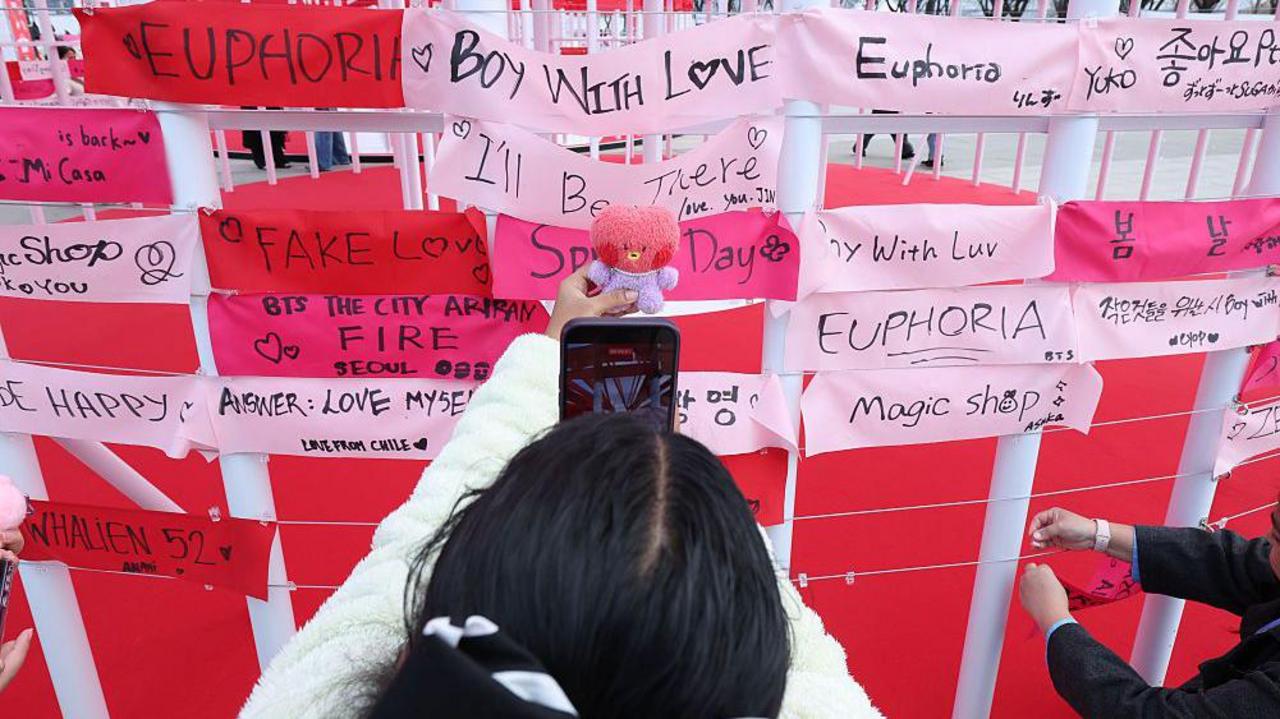 EUPHORIA
BOY WITH LOVE
Euphoria
りんず
YUKO 좋아요 Pt
ずっずーっとSUGA
is back~
Mi Casa
I'll Be There
love. you. JIN
Shop
YOU
FAKE LOVE
Day
With Luv
봄 날
BTS THE CITY ARIRAN
FIRE
SEOUL
EUPHORIA
BTS
작은것들을 위한 시 Boy with
HAPPY
ANSWER: LOVE MYSE
LOVE FROM CHILE
Magic shop
ASUKA
WHALIEN 52
ANAHI